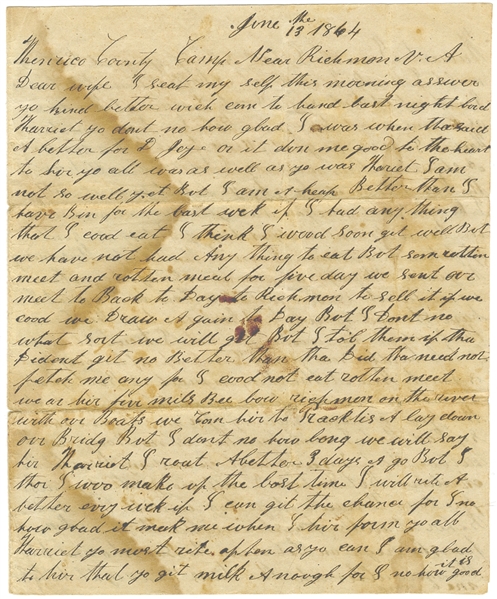 June the 13 1864
Henrico County Camp Near Richmon V A
Dear wife I seat my self this morning answer
yo kind letter wich com to hand last night lord
Harriet yo dont no how glad I was when tha said
A letter for D Joye or it don me good to the heart
to hir yo all was as well as yo was Hariet I am
not so well yet Bot I am A heap Better than I
have Bin for the last wek if I had any thing
that I cood eat I think I wood soon git well Bot
we have not had Any thing to eat Bot som rotten
meet and rotten meal for five day we sent our
meet to Back to Day to Richmon to sell it if we
cood we Draw A gain to Day Bot I Dont no
what sort we will git Bot I tol them if tha
Dident git no Better than tha Did tha need not
fetch me any for I cood not eat rotten meet
we ar hir five mils Bee low richmon on the river
with our Boats we Com hir to Practis A lay down
our Bridg Bot I dont no how long we will say
hir Harriet I rout A letter 3 days A go Bot I
thot I woo make up the lost time I will rite A
letter evry wek if I can git the chance for I no
how glad it meek me when I hir form yo all
Harriet yo most rite often as yo can I am glad
to hir that yo git milk A nough for I no how it is good